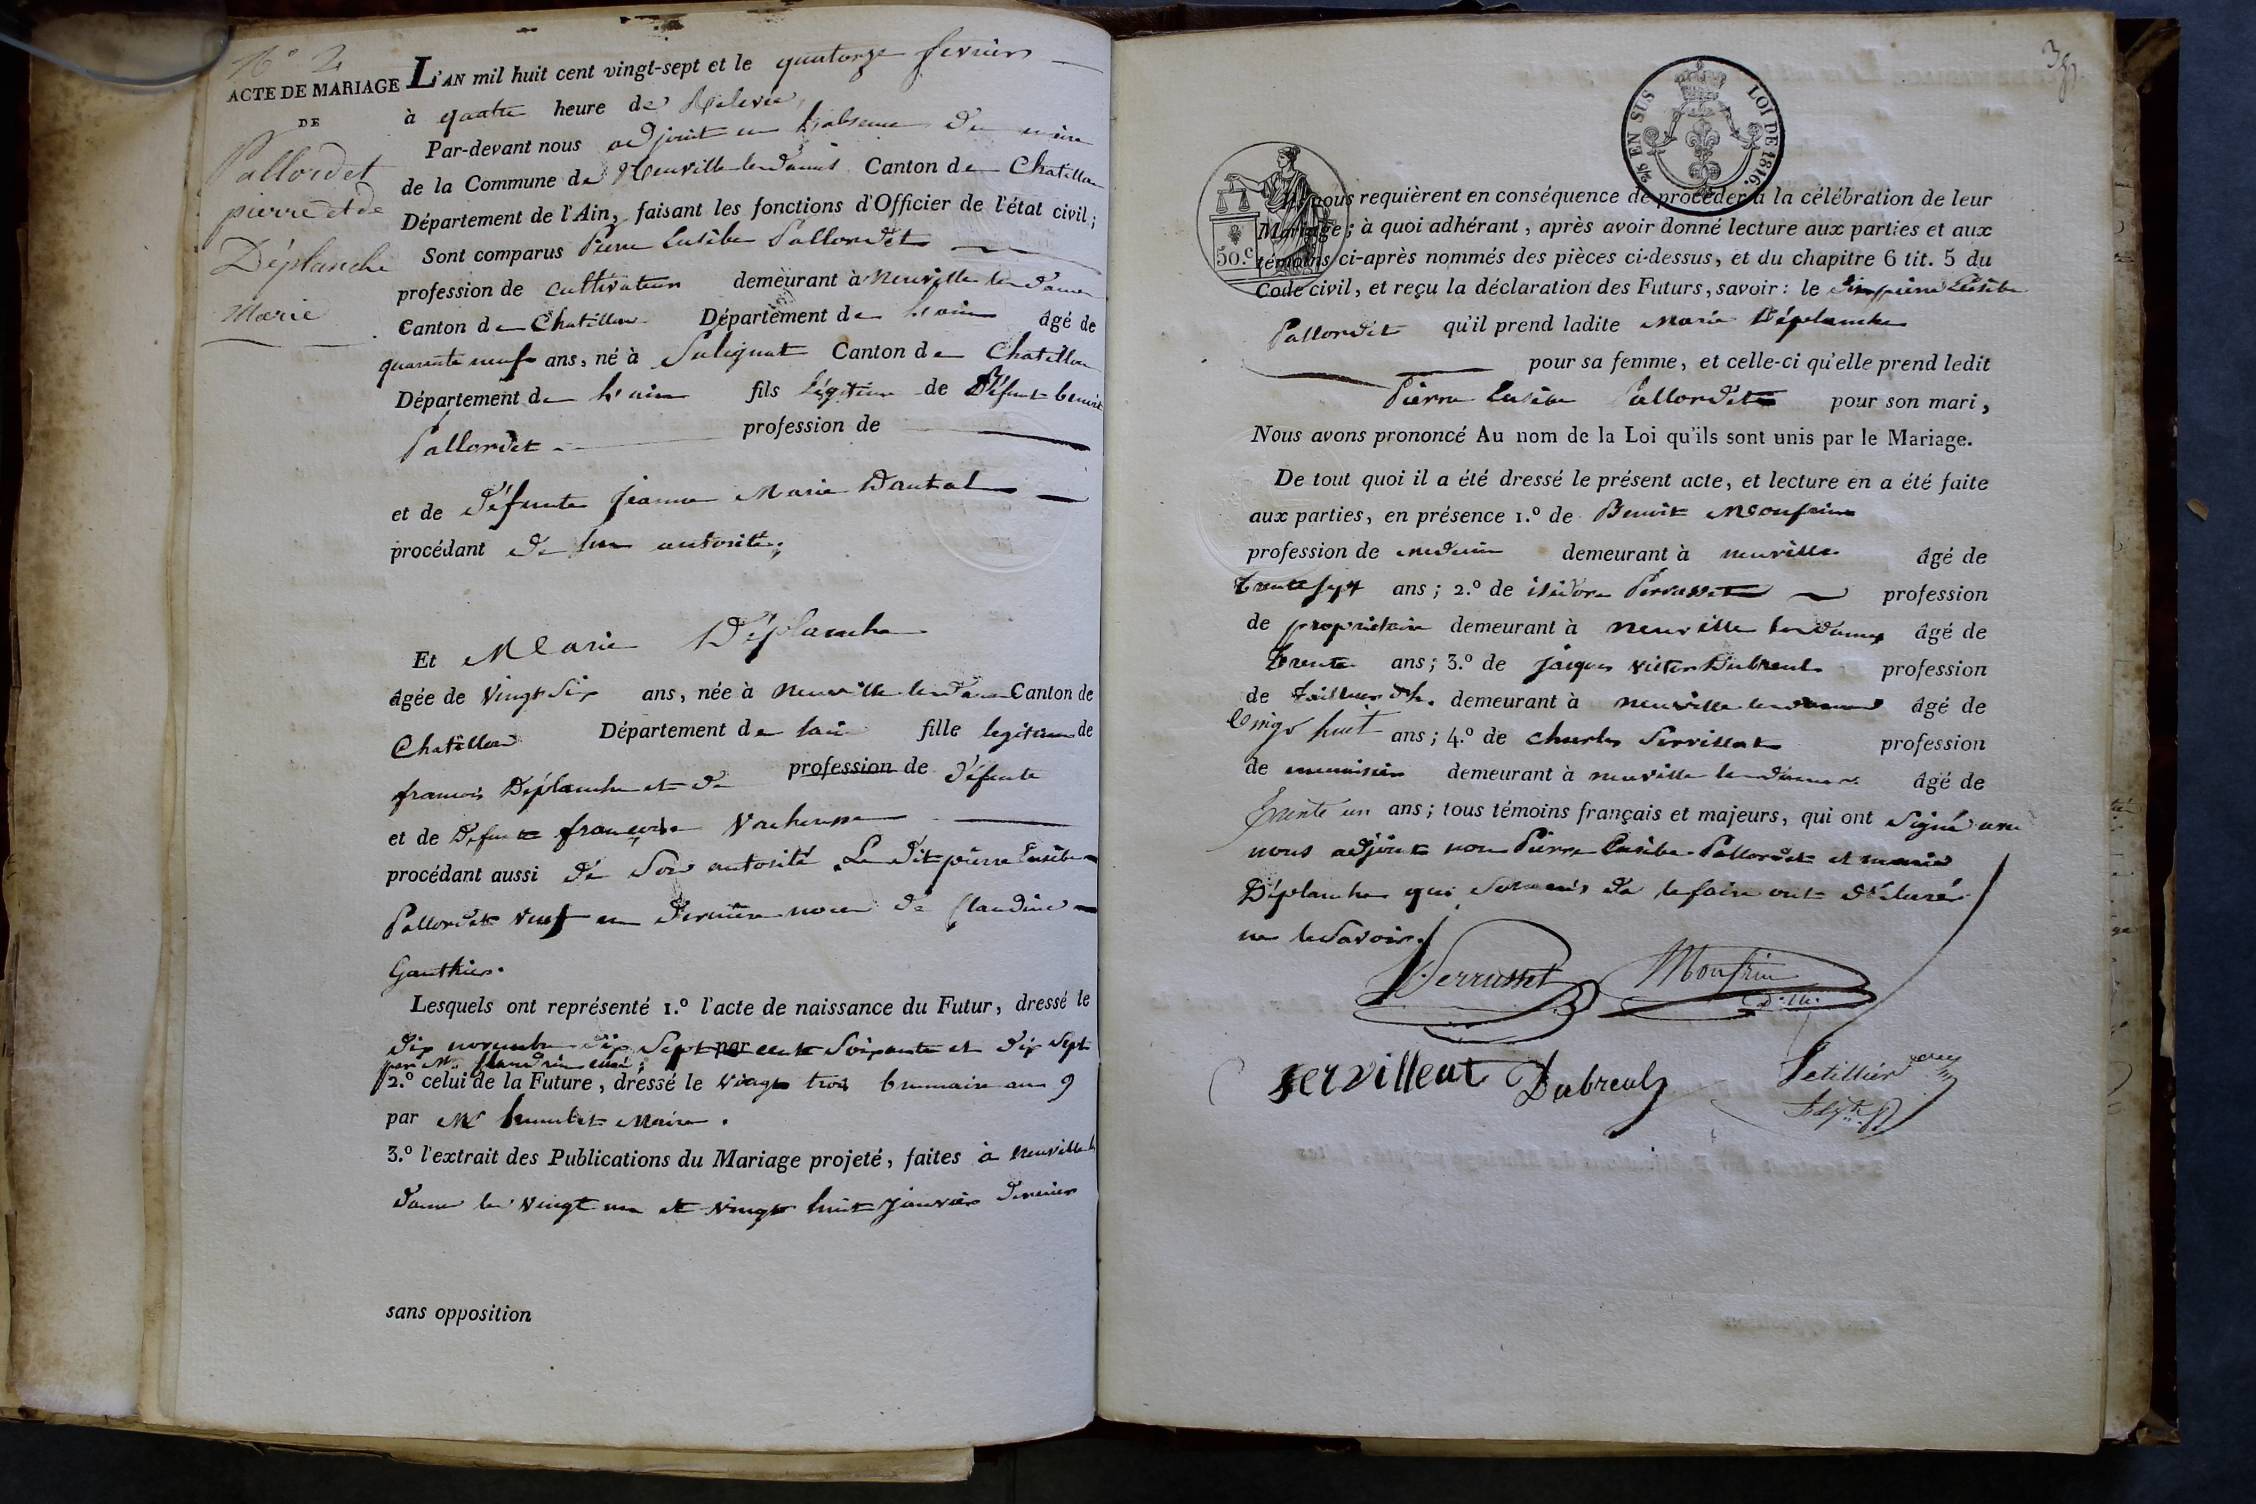 N° 2
ACTE DE MARIAGE
DE
Pallordet
pierre et de
Déplanche
Marie
L'AN mil huit cent vingt-sept et le quatorze fevrier
à quatre heure de Relevée,
Par-devant nous adjoint en l'absence du maire
de la Commune de Neuville les dames Canton de Chatillon
Département de l'Ain, faisant les fonctions d'Officier de l'état civil;
Sont comparus Pierre Eusèbe Pallordet
profession de cultivateur demeurant à neuville les dames
Canton de Chatillon Département de l'ain âgé de
quarante neuf ans, né à Sulignat Canton de Chatillon
Département de l'ain fils légitime de Défunt benoit
Pallordet profession de
et de défunte jeanne Marie Dautal
procédant de son autorité;
Et Marie Déplanche
âgée de vingt six ans, née à neuville les dames Canton de
Chatillon Département de lain fille legitime de
francois Déplanche et de profession de défunte
et de Defunte françoise Vacheresse
procédant aussi de Son autorité Le dit pierre Eusèbe
Pallordet veuf en dernière noce de Claudine
Gauthier.
Lesquels ont représenté 1.° l'acte de naissance du Futur, dressé le
dix novembre dix Sept par cent Soixante et dix sept
par Mr curé;
2.° celui de la Future, dressé le vingt trois brumaire an 9
par Mr Maire.
3.° l'extrait des Publications du Mariage projeté, faites à neuville les
dame les vingt un et vingt huit janvier dernier
sans opposition
38
2/6 EN SUS
LOI DE 1816.
50.c
Ils nous requièrent en conséquence de procéder à la célébration de leur
Mariage; à quoi adhérant, après avoir donné lecture aux parties et aux
témoins ci-après nommés des pièces ci-dessus, et du chapitre 6 tit. 5 du
Code civil, et reçu la déclaration des Futurs, savoir: le dit pierre Eusèbe
Pallordet qu'il prend ladite Marie Déplanche
pour sa femme, et celle-ci qu'elle prend ledit
Pierre Eusèbe Pallordet pour son mari,
Nous avons prononcé Au nom de la Loi qu'ils sont unis par le Mariage.
De tout quoi il a été dressé le présent acte, et lecture en a été faite
aux parties, en présence 1.° de Benoit Monfrin
profession de medecin demeurant à neuville âgé de
trente sept ans; 2.° de isidore Perrusset profession
de propriétaire demeurant à neuville les dames âgé de
trente ans; 3.° de jacques victor Dubreul profession
de tailleur d'h. demeurant à neuville les dames âgé de
vingt huit ans; 4.° de charles Servillat profession
de menuisier demeurant à neuville les dames âgé de
trente un ans; tous témoins français et majeurs, qui ont signé avec
nous adjoint non Pierre Eusèbe Pallordet et marie
Déplanche qui Sommés de le faire ont déclaré
ne le savoir.
Perrusset Monfrin
D. M.
servilleat Dubreul Petillier